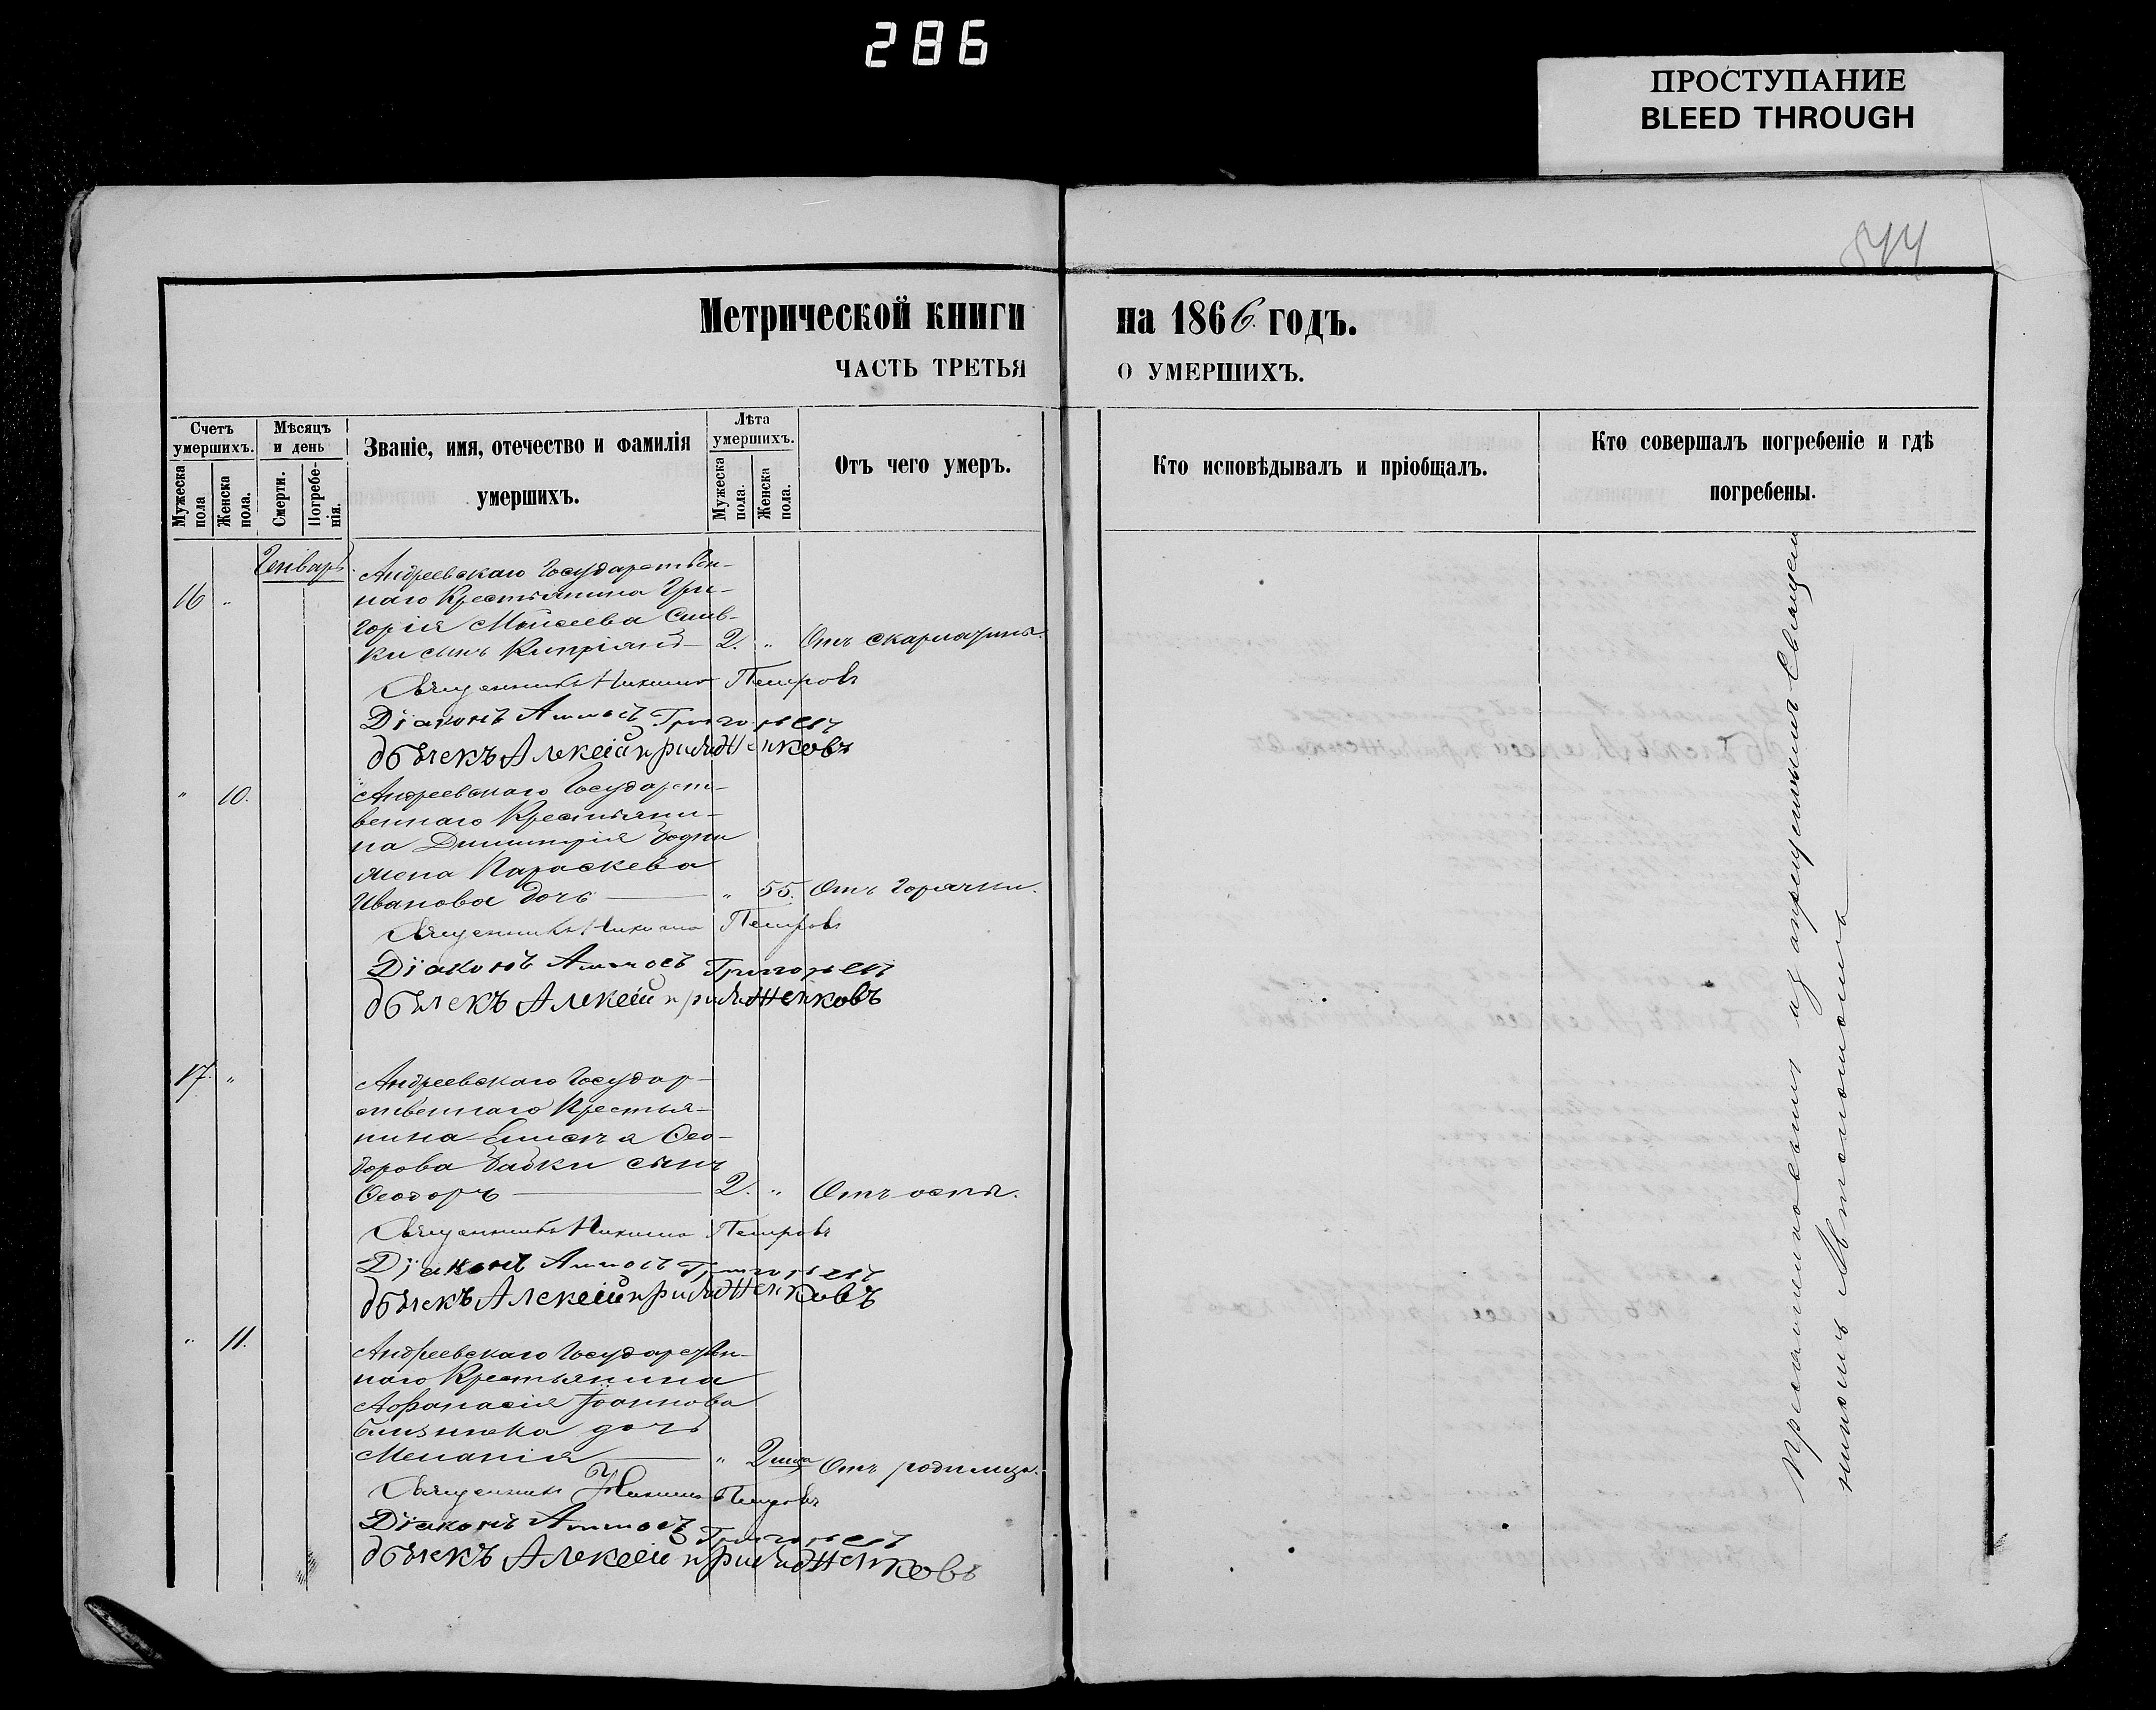 286
ПРОСТУПАНИЕ
BLEED THROUGH
544
Метрической книги на 1866. годъ.
ЧАСТЬ ТРЕТЬЯ О УМЕРШИХЪ.
Счетъ умершихъ.
Мужеска пола
Женска пола.
Мѣсяцъ и день
Смерти.
Погребенія.
Званіе, имя, отечество и фамилія умершихъ.
Лѣта умершихъ.
Мужеска пола.
Женска пола.
Отъ чего умеръ.
Кто исповѣдывалъ и пріобщалъ.
Кто совершалъ погребеніе и гдѣ
погребены.
Генварь.
Андреевскаго Государствен-
16 " наго Крестьянина Гри-
горія Моисеева Слив-
ки сынъ Кипріанъ 2. " Отъ скарлатины.
Священникъ Никита Петровъ
Діаконъ Аммосъ Григорьевъ
дьячекъ Алексій
" 10. Андреевскаго Государст-
веннаго Крестьяни-
на Димитрія
жена Параскева
Иванова дочь " 55. Отъ Горячки.
Священникъ Никита Петровъ
Діаконъ Аммосъ Григорьевъ
дьячекъ Алексій
17. " Андреевскаго Государ-
ственнаго Крестья-
нина Ѳео-
дорова Бабки сынъ
Ѳеодоръ 2. " Отъ оспы.
Священникъ Никита Петровъ
Діаконъ Аммосъ Григорьевъ
дьячекъ Алексій
" 11. Андреевскаго Государствен-
наго Крестьянина
Аѳанасія Іоаннова
дочь
Меланія " Отъ родимца.
Священникъ Никита Петровъ
Діаконъ Аммосъ Григорьевъ
дьячекъ Алексій
Священ
никомъ